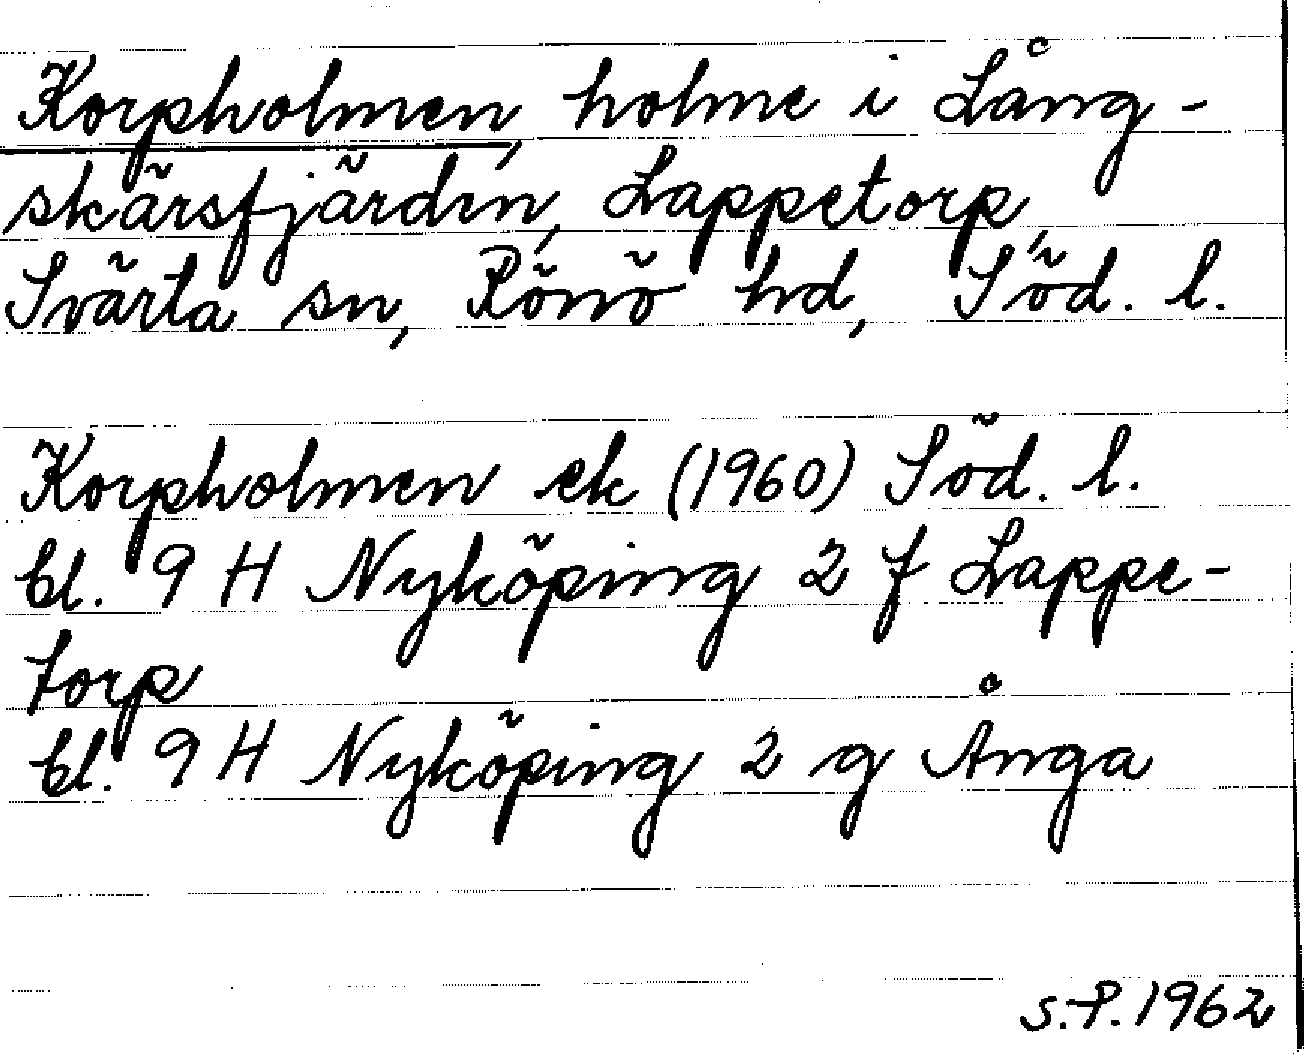 Korpholmen, holme i Lång-
skärsfjärden, Lappetorp,
Svärta sn, Rönö hd, Söd. l.
Korpholmen ek (1960) Söd. l.
bl. 9 H Nyköping 2 f Lappe-
torp
bl. 9 H Nyköping 2 g Ånga
S.-P. 1962